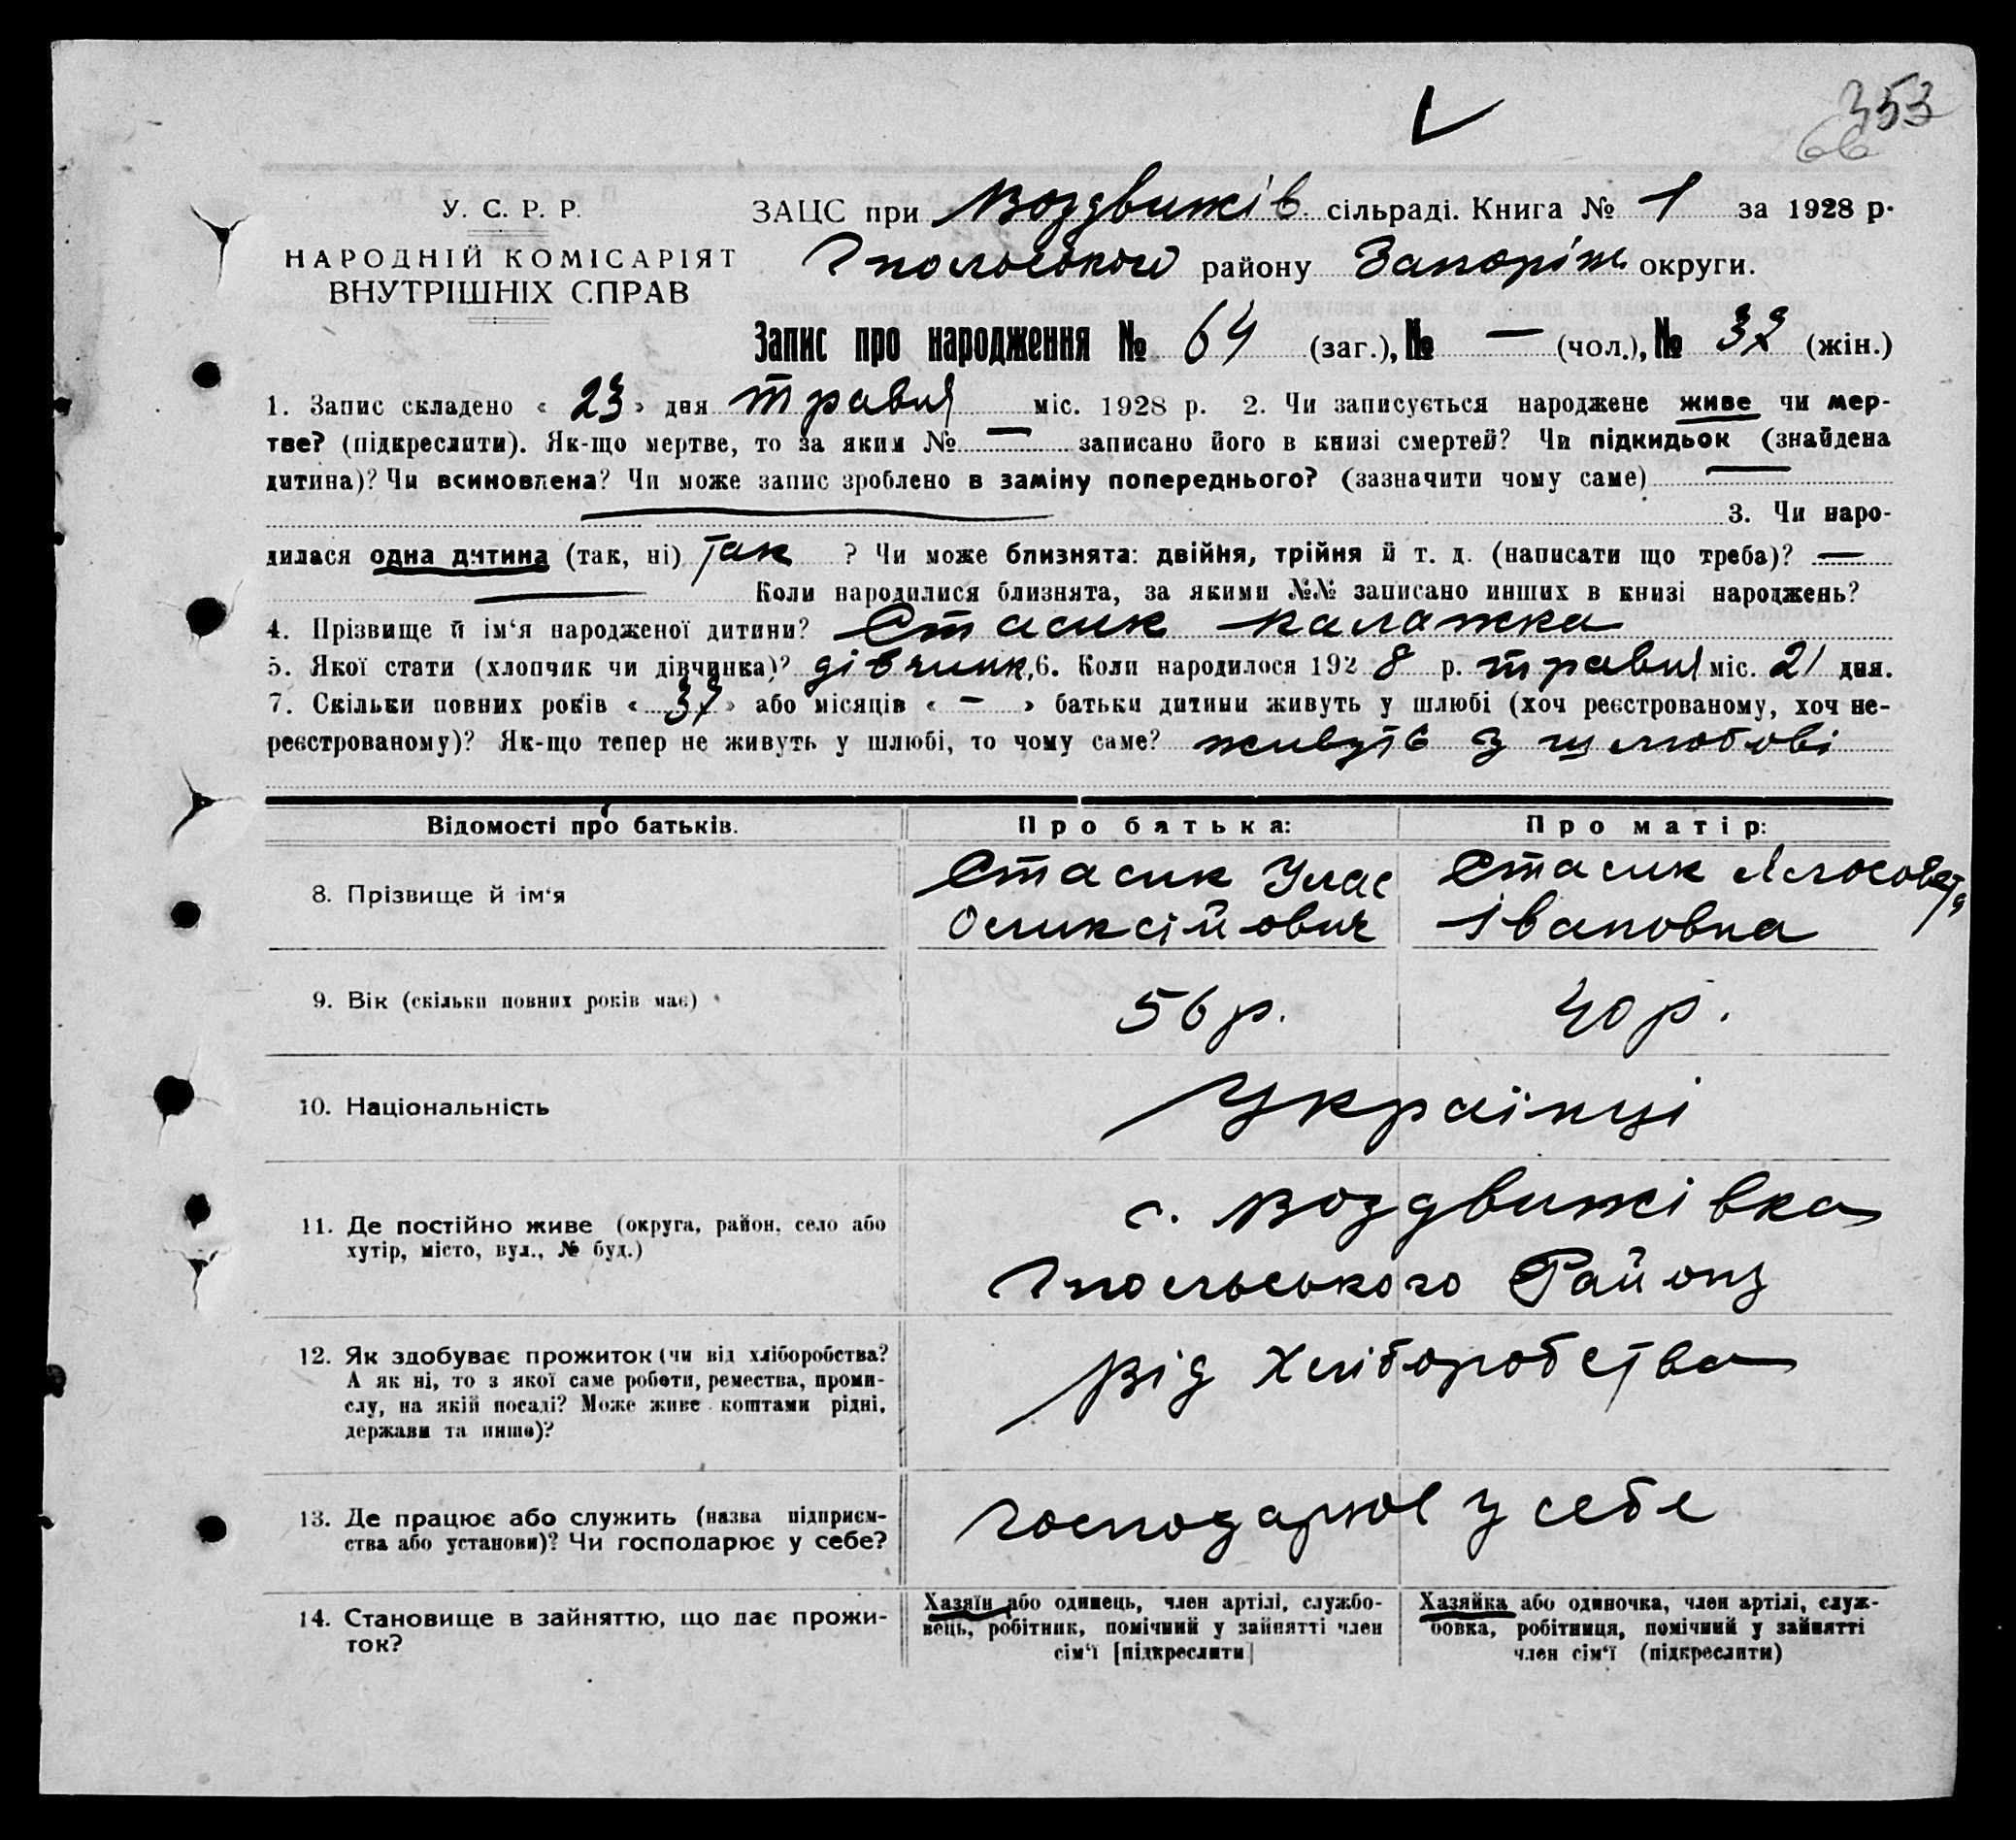 353
66
У. С. Р. Р.
НАРОДНІЙ КОМІСАРІЯТ
ВНУТРІШНІХ СПРАВ
ЗАЦС при Воздвижів. сільраді. Книга № 1 за 1928 р.
Гпольського району Запоріж. округи.
Запис про народження № 64 (заг.), № — (чол.), № (жін.)
1. Запис складено « 23 » дня травня міс. 1928 р. 2. Чи записується народжене живе чи мер-
тве? (підкреслити). Як-що мертве, то за яким № — записано його в книзі смертей? Чи підкидьок (знайдена
дитина)? Чи всиновлена? Чи може запис зроблено в заміну попереднього? (зазначити чому саме) —
— 3. Чи наро-
дилася одна дитина (так, ні) так ? Чи може близнята: двійня, трійня й т. д. (написати що треба)? —
— Коли народилися близнята, за якими №№ записано инших в книзі народжень?
4. Прізвище й ім‘я народженої дитини? Стасик
5. Якої стати (хлопчик чи дівчинка)? дівчинк, 6. Коли народилося 1928 р. травня міс. 21 дня.
7. Скільки повних років « » або місяців « - » батьки дитини живуть у шлюбі (хоч реєстрованому, хоч не-
реєстрованому)? Як-що тепер не живуть у шлюбі, то чому саме? живуть з шлюбові
Відомості про батьків. Про батька: Про матір:
8. Прізвище й ім‘я Стасик Улас Стасик
Оликсійович Івановна
9. Вік (скільки повних років має) 56 р. 40 р.
10. Національність Українці
11. Де постійно живе (округа, район, село або
хутір, місто, вул., № буд.)
с. Воздвижівка
Гпольського Району
12. Як здобуває прожиток (чи від хліборобства?
А як ні, то з якої саме роботи, ремества, проми-
слу, на якій посаді? Може живе коштами рідні,
держави та инше)?
від Хліборобства
13. Де працює або служить (назва підприєм-
ства або установи)? Чи господарює у себе?
господарює у себе
14. Становище в зайняттю, що дає прожи-
ток?
Хазяїн або одинець, член артілі, службо-
вець, робітник, помічний у зайнятті член
сім‘ї [підкреслити]
Хазяйка або одиночка, член артілі, служ-
бовка, робітниця, помічний у зайнятті
член сім‘ї (підкреслити)